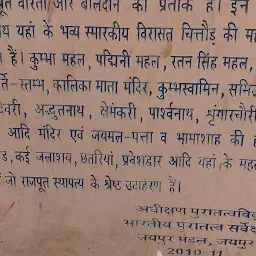 वीरता और बलिदान का प्रतीक है। इन
यहां के भव्य स्मारकीय विरासत चित्तौड़ की
है। कुम्भा महल, पद्मिनी महल, रतन सिंह महल,
स्तम्भ, कालिका माता मंदिर, कुम्भस्वामिन,
अद्भुतनाथ, क्षेमंकरी, पार्श्वनाथ, श्रृंगारचौरी
आदि मंदिर एवं जयमल-पत्ता व भामाशाह की
कई जलाशय, छतरियां, प्रवेशद्वार आदि यहां के
जो राजपूत स्थापत्य के श्रेष्ठ उदाहरण हैं।
अधीक्षण पुरातत्वविद
भारतीय पुरातत्व सर्वेक्षण
जयपुर मंडल, जयपुर
2010-11